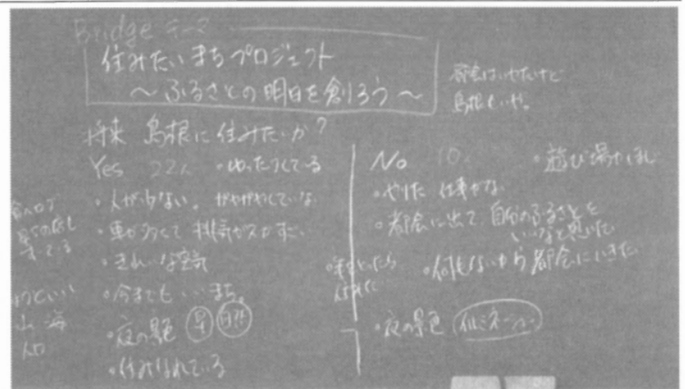 Bridge テーマ
住みたいまちプロジェクト
～ふるさとの明日を創ろう～
都会はいやだけど
島根もいや。
将来 島根に住みたいか?
Yes 22人 ・ゆったりしている
・人が少ない。がやがやしていな
・車が多くて排気ガスが
・きれいな空気
・今までもいいまち。
・夜の景色 星 自然
・住みなれている
山 海
人口
No 10人 ・遊び場がほし
・やりたい仕事がない
・都会に出て、自分のふるさとを
いいなと思いたい
・何もないから都会にいきたい
・夜の景色 イルミネーション